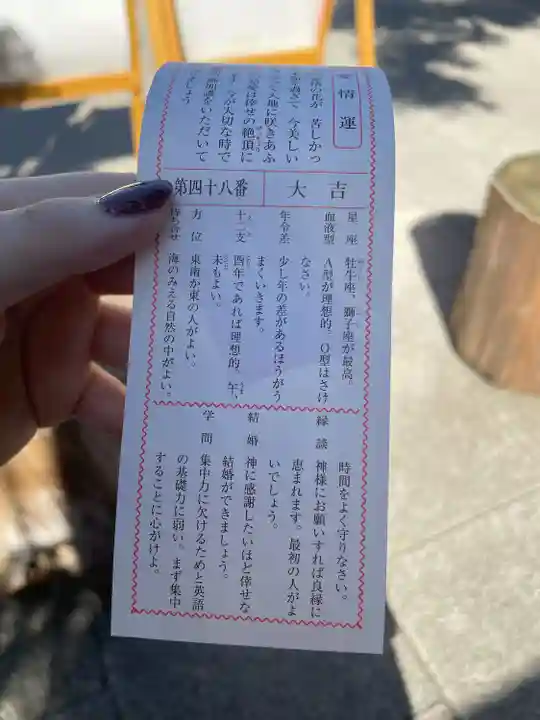 情運
の花が 苦しかっ
過ぎて 今美しい
て大地に咲きあふ
は倖せの絶頂に
今が大切な時で
加護をいただいて
しょう
第四十八番
大吉
星座 牡牛座、獅子座が最高。
血液型 A型が理想的。O型はさけ
なさい。
年令差 少し年の差があるほうがう
まくいきます。
十二支 酉年であれば理想的。午、
未もよい。
方位 東南か東の人がよい。
待ち合せ 海のみえる自然の中がよい。
時間をよく守りなさい。
縁談 神様にお願いすれば良縁に
恵まれます。最初の人がよ
いでしょう。
結婚 神に感謝したいほど倖せな
結婚ができましょう。
学問 集中力に欠けるためと英語
の基礎力に弱い。まず集中
することに心がけよ。